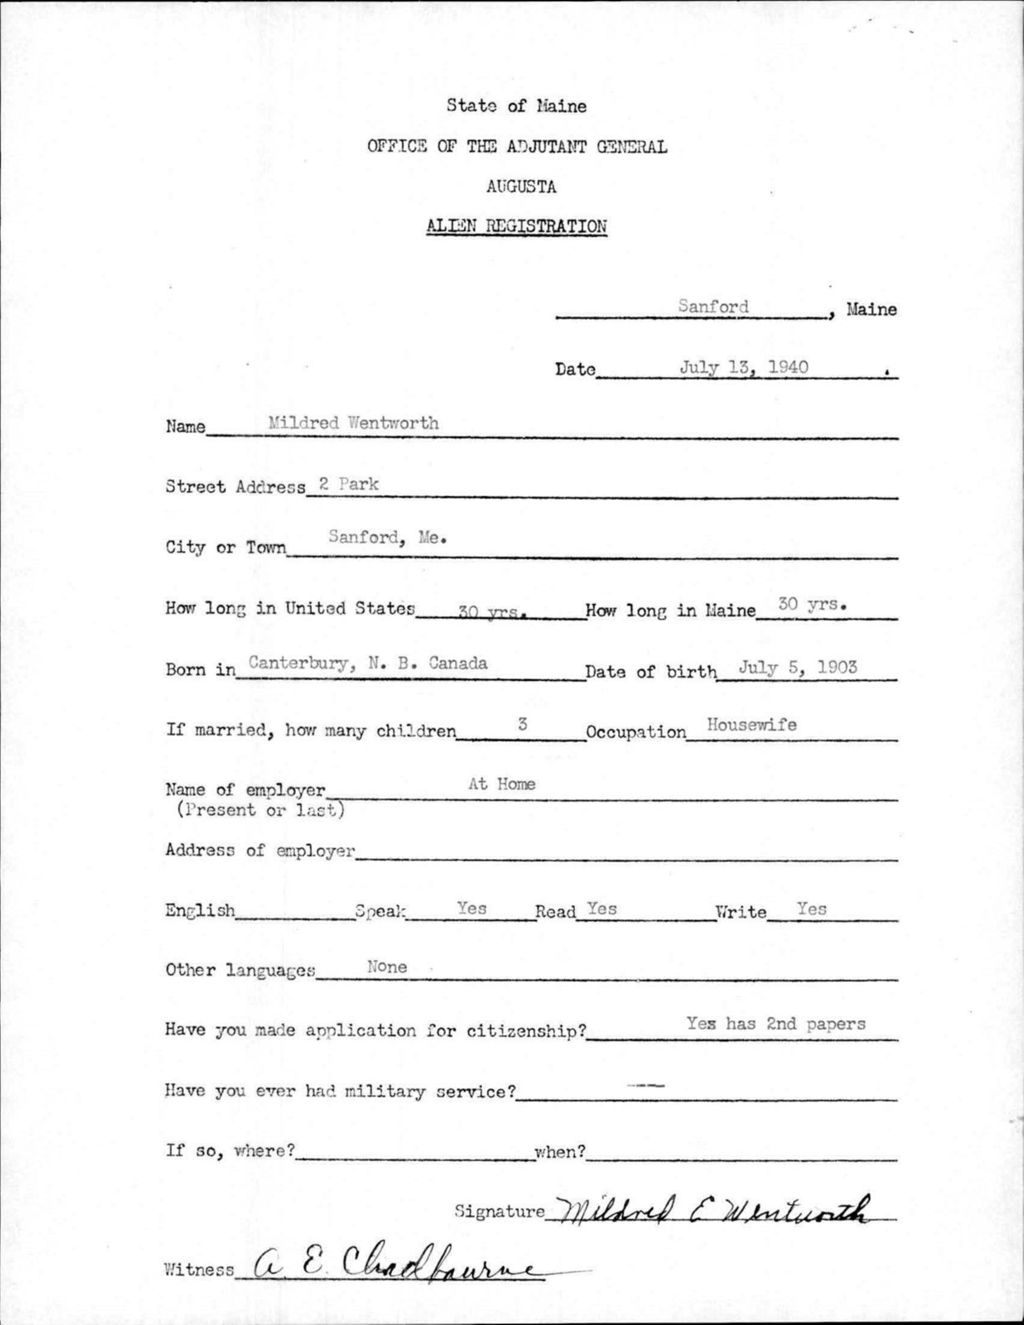 State of Maine
OFFICE OF THE ADJUTANT GENERAL
AUGUSTA
ALIEN REGISTRATION
Sanford, Maine
Date July 13, 1940.
Name Mildred Wentworth
Street Address 2 Park
City or Town Sanford, Me.
How long in United States 30 yrs. How long in Maine 30 yrs.
Born in Canterbury, N. B. Canada Date of birth July 5, 1903
If married, how many children 3 Occupation Housewife
Name of employer At Home
(Present or last)
Address of employer
English Speak Yes Read Yes Write Yes
Other languages None
Have you made application for citizenship? Yes has 2nd papers
Have you ever had military service? --
If so, where? when?
Signature Mildred E Wentworth
Witness A. E. Chadbourne